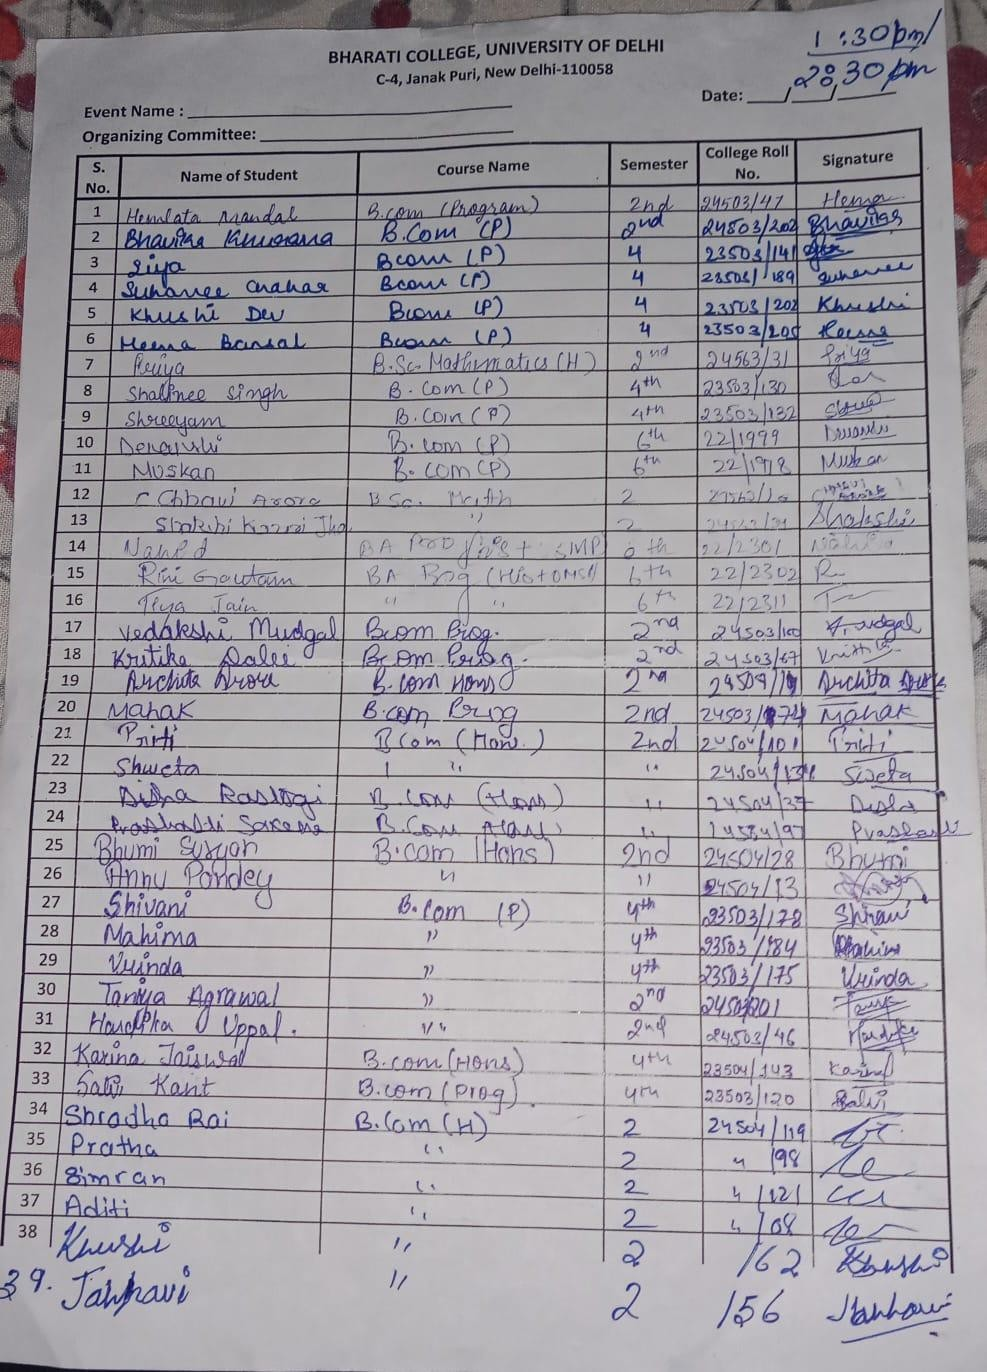 1:30pm/
2:30pm
BHARATI COLLEGE, UNIVERSITY OF DELHI
C-4, Janak Puri, New Delhi-110058
Date: ___/___/_____
Event Name :
Organizing Committee:
S. No. Name of Student Course Name Semester College Roll No. Signature
1 Hemlata Mandal B.com (Program) 2nd 24503/47 Hema
2 Bhavika Khurana B.Com (P) 2nd 24503/202 Bhavika
3 Riya Bcom (P) 4 23503/141
4 Suhanee Chahar Bcom (P) 4 23503/189 Suhanee
5 Khushi Dev Bcom (P) 4 23503/202 Khushi
6 Heena Bansal Bcom (P) 4 Heena
7 Priya B.Sc. Mathematics (H) 2nd 24563/31 Priya
8 Shalinee Singh B.Com (P) 4th 23503/130
9 Shreeyam B.Com (P) 4th 23503/132
10 B.com (P) 6th 22/1999
11 Muskan B.com (P) 6th 22/1978 Muskan
12 Chhavi Arora B Sc. Math 2
13 Jha " 2 Shakshi
14 BA Prog 6th 22/2301
15 Rini Gautam BA Prog 6th 22/2302
16 Tiya Jain " " 6th 22/2311
17 Vedakshi Mudgal Bcom Prog. 2nd 24503/100 Mudgal
18 Kritika Dalei Bcom Prog. 2nd 24503/67 Kritika
19 Archita Arora B.com Hons 2nd Archita Arora
20 Mahak B.com Prog 2nd Mahak
21 Priti B Com (Hons.) 2nd 24504/101 Priti
22 Shweta " " Sweta
23 Disha Rastogi B.Com (Hons) " 24504/37 Disha
24 Prashasti Saxena B.Com (Hons) "
25 Bhumi B.com (Hons) 2nd 24504/28 Bhumi
26 Annu Pandey " " 24504/13
27 Shivani B.Com (P) 4th 23503/178 Shivani
28 Mahima " 4th 23503/184 Mahima
29 Vrinda " 4th 23503/175 Vrinda
30 Taniya Agrawal " 2nd
31 Uppal. " 2nd 24503/46
32 Karina Jaiswal B.com (Hons) 4th 23504/143 Karina
33 Kant B.com (Prog). 4th 23503/120
34 Shradha Rai B.Com (H) 2 24504/119
35 Pratha " 2 " /98
36 Simran " 2 " /121
37 Aditi " 2 " /08
38 Khushi " 2 /62 Khushi
39. Jahnavi " 2 /56 Jahnavi